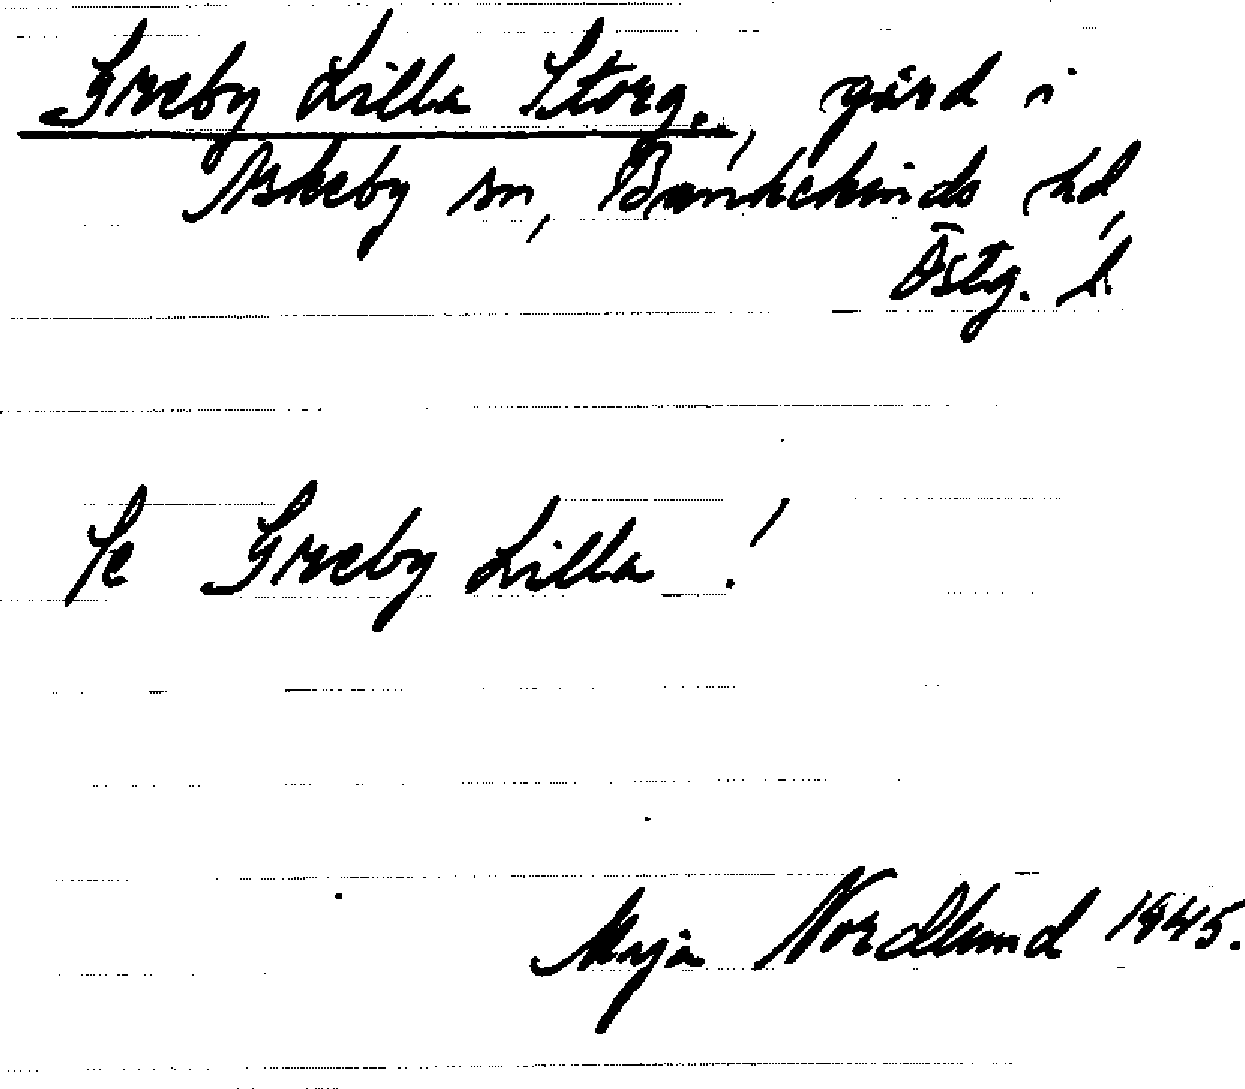 Greby Lilla Storg., gård i
Askeby sn, Bankekinds hd,
Östg. l.
Se Greby Lilla!
Maja Nordlund 1945.